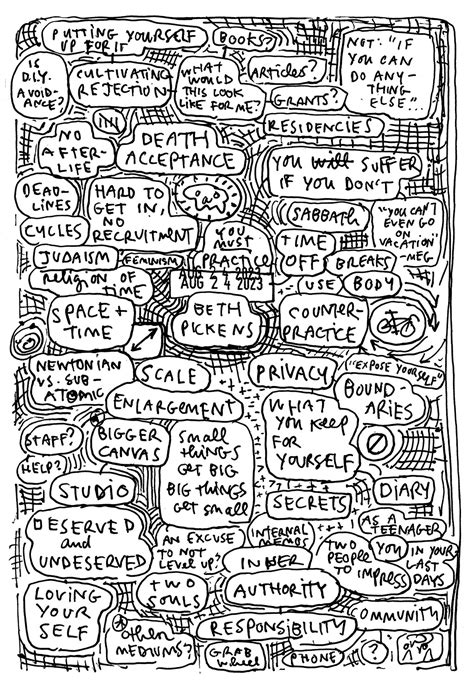 PUTTING YOURSELF
UP FOR IT
BOOKS?
NOT: "IF
YOU CAN
DO ANY-
THING
ELSE"...
IS
D.I.Y.
AVOID-
ANCE?
CULTIVATING
REJECTION
WHAT
WOULD
THIS LOOK
LIKE FOR ME?
Articles?
GRANTS?
RESIDENCIES
NO
AFTER-
LIFE
DEATH
ACCEPTANCE
YOU will SUFFER
IF YOU DON'T
DEAD-
LINES
HARD TO
GET IN,
NO
RECRUITMENT
SABBATH
"YOU CAN'T
EVEN GO
ON
VACATION"
-MEG
CYCLES
YOU
MUST
PRACTICE
TIME
OFF
BREAKS
JUDAISM
FEMINISM
religion of
TIME
AUG 24 2023
AUG 24 2023
USE
BODY
SPACE +
TIME
BETH
PICKENS
COUNTER-
PRACTICE
NEWTONIAN
VS. SUB-
ATOMIC
SCALE
PRIVACY
"EXPOSE YOURSELF"
BOUND-
ARIES
ENLARGEMENT
WHAT
YOU KEEP
FOR
YOURSELF
STAFF?
HELP?
BIGGER
CANVAS
Small
things
GET BIG
BIG THINGS
GET small
STUDIO
SECRETS
DIARY
DESERVED
and
UNDESERVED
AN EXCUSE
TO NOT
LEVEL UP?
INTERNAL
MEMOS
INNER
AS A
TEENAGER
TWO
PEOPLE
TO IMPRESS
YOU
IN YOUR
LAST
DAYS
LOVING
YOUR
SELF
TWO
SOULS
AUTHORITY
COMMUNITY
Other
MEDIUMS?
RESPONSIBILITY
GRAB
wheel
PHONE
?